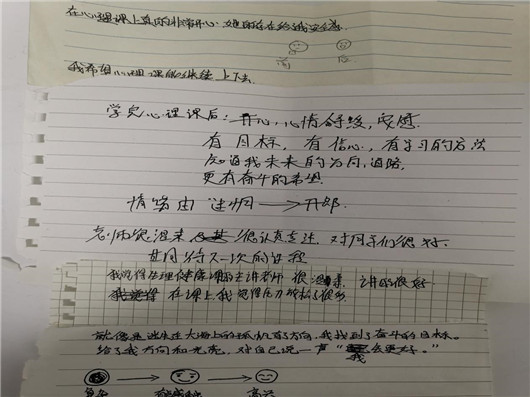 在心理课上真的非常开心，她的存在给我安全感。
前 后
我希望心理课能继续上下去。
学完心理课后：开心，心情舒缓，感
有目标，有信心，有学习的方法
知道我未来的方向，道路
更有奋斗的希望
情绪由迷惘→开朗
老师很温柔 很认真专注，对同学们很好。
期待下次的课程
我觉得心理健康课的主讲老师很温柔，讲的很好
在课上，我觉得压力放松了很多
就像是迷失在大海上的 有了方向，我找到了奋斗的目标。
给了我方向和光亮，对自己说一声“我 会更好。”
→ →
高兴